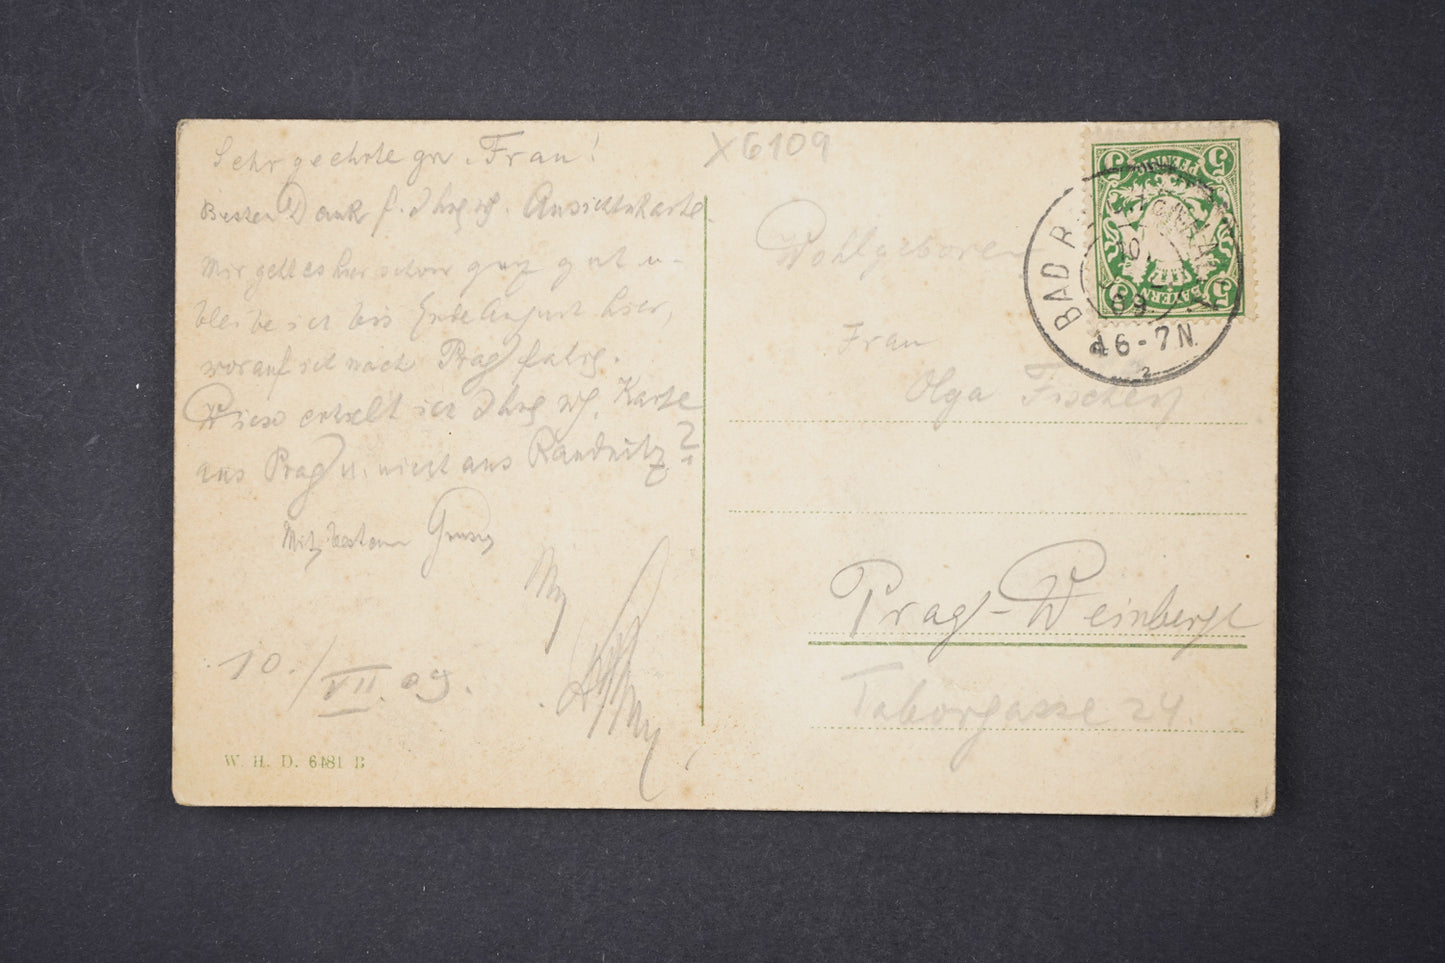 Sehr geehrte gn. Frau!
Besten Dank f. Ihre Ansichtskarte.
Mir geht es hier schon ganz gut u.
bleibe ich bis Ende August hier,
worauf ich nach Prag fahre.
Wieso erhielt ich Ihre Karte
aus Prag u. nicht aus Raudnitz?
Mit besten
10./VII.09.
W. H. D. 6481 B
X6109
5 PFENNIG 5
BAYERN
5 5
BAD
09
6-7N
2
Wohlgeboren
Frau
Olga Fischer
Prag-Weinberge
Taborgasse 24.